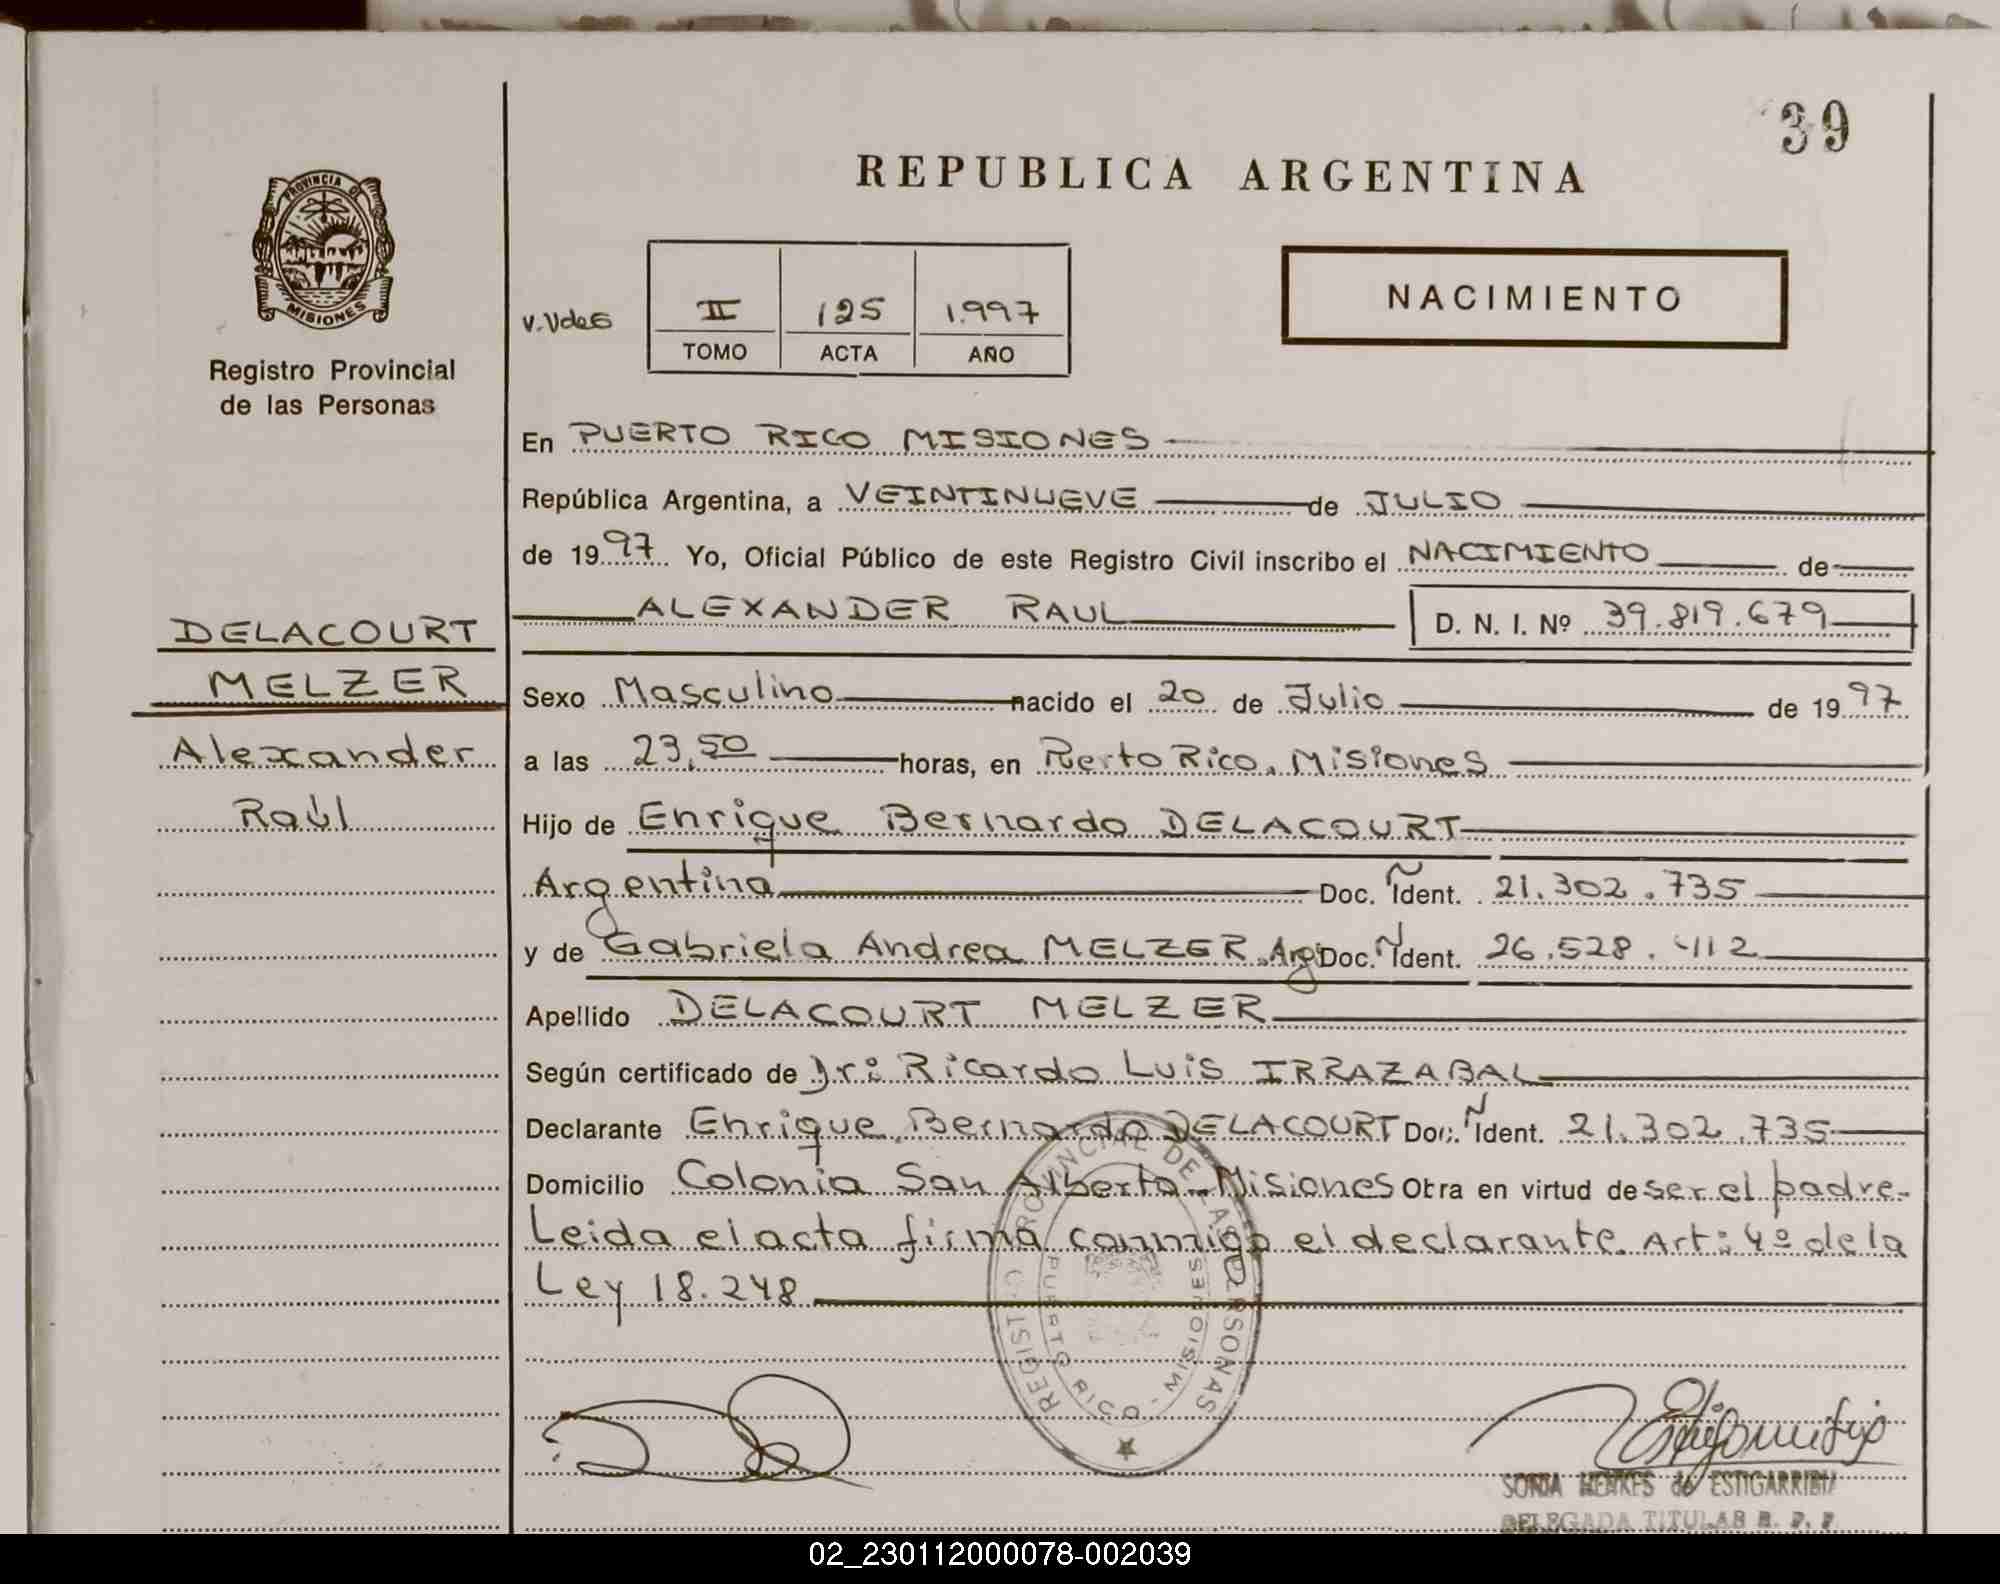 39
REPUBLICA ARGENTINA
PROVINCIA DE
MISIONES
Registro Provincial
de las Personas
II 125 1.997
TOMO ACTA AÑO
NACIMIENTO
En PUERTO RICO MISIONES
República Argentina, a VEINTINUEVE de JULIO
de 1997 Yo, Oficial Público de este Registro Civil inscribo el NACIMIENTO de
ALEXANDER RAUL D. N. I. Nº 39.819.679
DELACOURT
MELZER
Alexander
Raúl
Sexo Masculino nacido el 20 de Julio de 1997
a las 23,50 horas, en Perto Rico, Misiones
Hijo de Enrique Bernardo DELACOURT
Argentina Doc. Ident. 21.302.735
y de Gabriela Andrea MELZER, Arg Doc. Ident. 26.528.412
Apellido DELACOURT MELZER
Según certificado de Dr: Ricardo Luis IRRAZABAL
Declarante Enrique Bernardo DELACOURT Doc. Ident. 21.302.735
Domicilio Colonia San Alberto-Misiones Obra en virtud de ser el padre-
Leida el acta firma conmigo el declarante. Art: 4º de la
Ley 18.248
REGISTRO PROVINCIAL DE LAS PERSONAS
PUERTO RICO - MISIONES
SONIA HENKES de ESTIGARRIBIA
DELEGADA TITULAR R. P. P.
02_230112000078-002039